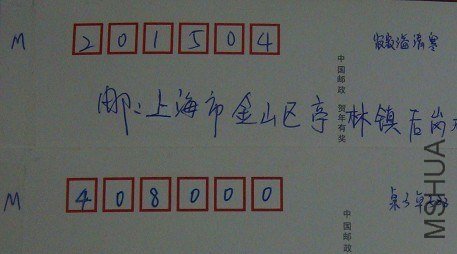 M 201504
溢清寒
中国邮政 贺年有奖
邮:上海市金山区亭林镇后岗
M 408000
中国邮政
MSHUA